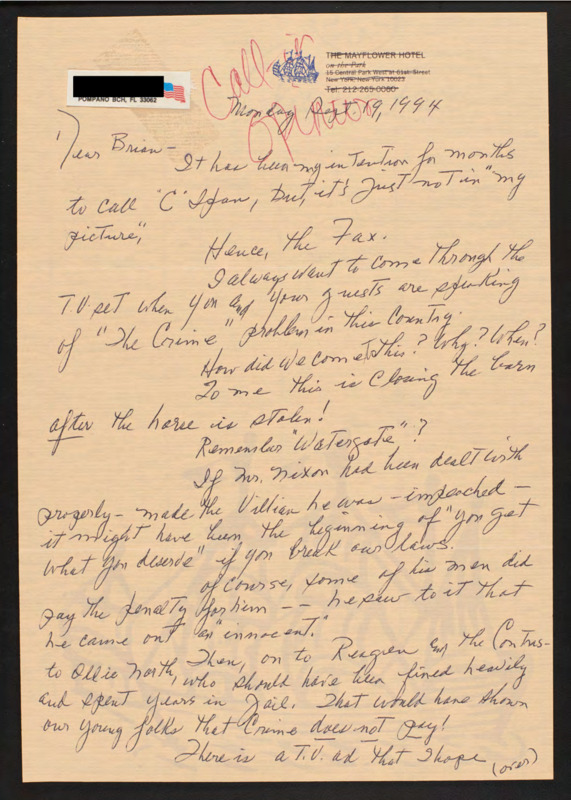 THE MAYFLOWER HOTEL
on the Park
15 Central Park West at 61st Street
New York, New York 10023
Tel: 212-265-0060
POMPANO BCH, FL 33062
Call in
Opinion
Monday Sept. 19, 1994
Dear Brian -
It has been my intention for months
to call "C" Span, but, it's just not in "my
picture",
Hence, the Fax.
I always want to come through the
T.V. set when you and your guests are speaking
of "The Crime" problem in this Country.
How did we come to this? Why? When?
To me this is closing the barn
after the horse is stolen!
Remember "Watergate"?
If Mr. Nixon had been dealt with
properly - made the Villian he was - impeached -
it might have been the beginning of "you get
what you deserve" if you break our laws.
Of course, some of his men did
pay the penalty for him -- he saw to it that
he came out as "innocent."
Then, on to Reagren and the Contras -
to Ollie North, who should have been fined heavily
and spent years in Jail. That would have shown
our young folks that Crime does not pay!
There is a T.V. ad that I hope
(over)